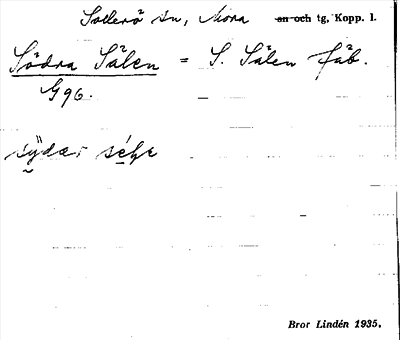 Sollerö sn, Mora sn och tg, Kopp. l.
Södra Sälen = S. Sälen fäb.
G96.
Bror Lindén 1935.